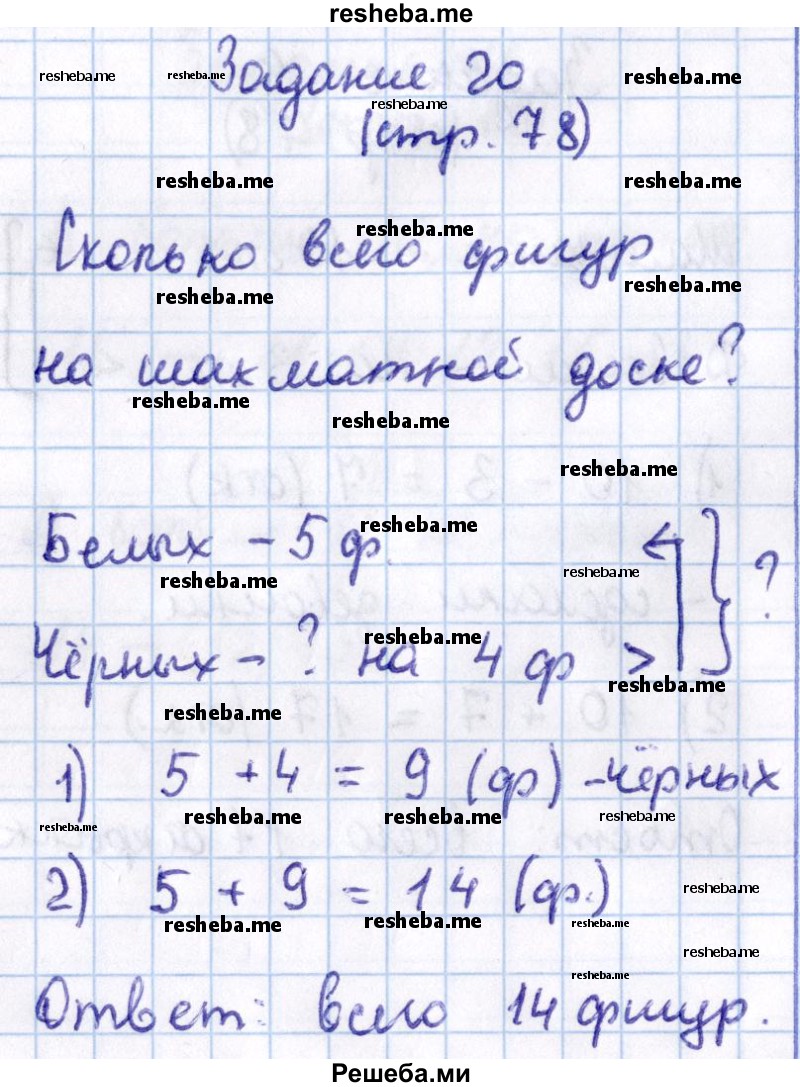 resheba.me
resheba.me resheba.me Задание 20 resheba.me
resheba.me
(стр. 78)
resheba.me resheba.me
resheba.me
Сколько всего фигур
resheba.me resheba.me
на шахматной доске?
resheba.me
resheba.me
resheba.me
resheba.me
Белых - 5 ф. ?
resheba.me resheba.me
resheba.me
Чёрных - ? на 4 ф >
resheba.me
resheba.me
1) 5 + 4 = 9 (ф) - чёрных
resheba.me resheba.me resheba.me resheba.me
2) 5 + 9 = 14 (ф.) resheba.me
resheba.me resheba.me resheba.me
resheba.me
resheba.me
Ответ: всего 14 фигур.
Решеба.ми